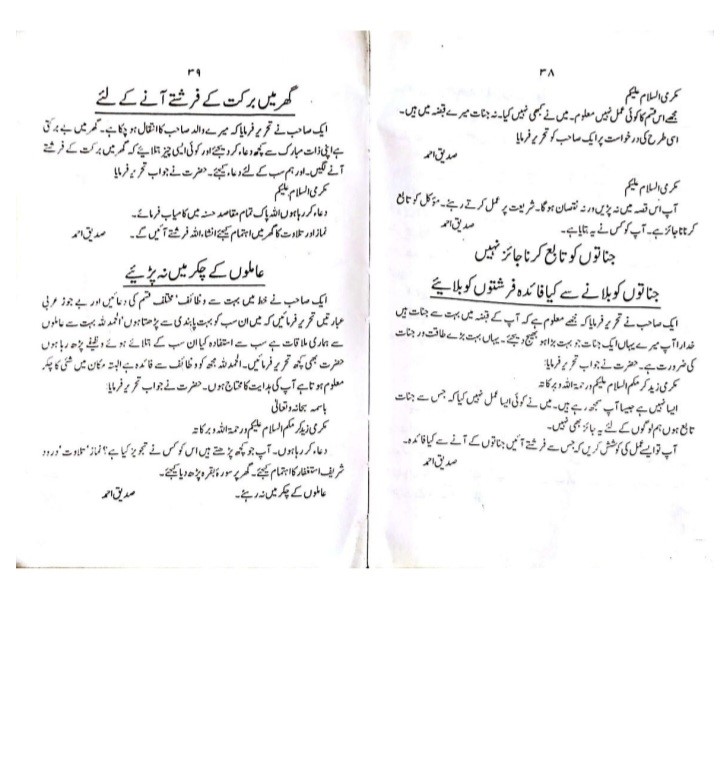 ۳۸
مکرمی السلام علیکم
مجھے اس قسم کا کوئی عمل نہیں معلوم۔ میں نے کبھی نہیں کیا۔ نہ جنات میرے قبضہ میں ہیں۔
اسی طرح کی درخواست پر ایک صاحب کو تحریر فرمایا
صدیق احمد
مکرمی السلام علیکم
آپ اس قصہ میں نہ پڑیں ورنہ نقصان ہوگا۔ شریعت پر عمل کرتے رہئے۔ مؤکل کو تابع
کرنا جائز ہے۔ آپ کو کس نے یہ بتایا ہے۔ صدیق احمد
جناتوں کو تابع کرنا جائز نہیں
جناتوں کو بلانے سے کیا فائدہ فرشتوں کو بلائیے
ایک صاحب نے تحریر فرمایا کہ مجھے معلوم ہے کہ آپ کے قبضہ میں بہت سے جنات ہیں
خدارا آپ میرے یہاں ایک جنات جو بہت بڑا ہو بھیج دیجئے۔ یہاں بہت بڑے طاقت ور جنات
کی ضرورت ہے۔ حضرت نے جواب تحریر فرمایا
مکرمی زید کرمکم السلام علیکم ورحمۃ اللہ وبرکاتہ
ایسا نہیں ہے جیسا آپ سمجھ رہے ہیں۔ میں نے کوئی ایسا عمل نہیں کیا کہ جس سے جنات
تابع ہوں ہم لوگوں کے لئے یہ جائز بھی نہیں۔
آپ تو ایسے عمل کی کوشش کریں کہ جس سے فرشتے آئیں جناتوں کے آنے سے کیا فائدہ۔
صدیق احمد
۳۹
گھر میں برکت کے فرشتے آنے کے لئے
ایک صاحب نے تحریر فرمایا کہ میرے والد صاحب کا انتقال ہو چکا ہے۔ گھر میں بے برکتی
ہے اپنی ذات مبارک سے کچھ دعاء کر دیجئے اور کوئی ایسی چیز بتلائیے کہ گھر میں برکت کے فرشتے
آنے لگیں۔ اور ہم سب کے لئے دعاء کیجئے۔ حضرت نے جواب تحریر فرمایا
مکرمی السلام علیکم
دعاء کر رہا ہوں اللہ پاک تمام مقاصد حسنہ میں کامیاب فرمائے۔
نماز اور تلاوت کا گھر میں اہتمام کیجئے انشاء اللہ فرشتے آئیں گے۔ صدیق احمد
عاملوں کے چکر میں نہ پڑئیے
ایک صاحب نے خط میں بہت سے وظائف' مختلف قسم کی دعائیں اور بے جوڑ عربی
عبارتیں تحریر فرمائیں کہ میں ان سب کو بہت پابندی سے پڑھتا ہوں' الحمد للہ بہت سے عاملوں
سے ہماری ملاقات ہے سب سے استفادہ کیا ان سب کے بتلائے ہوئے وظیفے پڑھ رہا ہوں
حضرت بھی کچھ تحریر فرمائیں۔ الحمد للہ مجھ کو وظائف سے فائدہ ہے البتہ مکان میں شئی کا چکر
معلوم ہوتا ہے آپ کی ہدایت کا محتاج ہوں۔ حضرت نے جواب تحریر فرمایا
باسمہ سبحانہ وتعالیٰ
مکرمی زید کرمکم السلام علیکم ورحمۃ اللہ وبرکاتہ
دعاء کر رہا ہوں۔ آپ جو کچھ پڑھتے ہیں اس کو کس نے تجویز کیا ہے؟ نماز' تلاوت' درود
شریف استغفار کا اہتمام کیجئے۔ گھر پر سورۂ بقرہ پڑھ دیا کیجئے۔
عاملوں کے چکر میں نہ رہئے۔ صدیق احمد